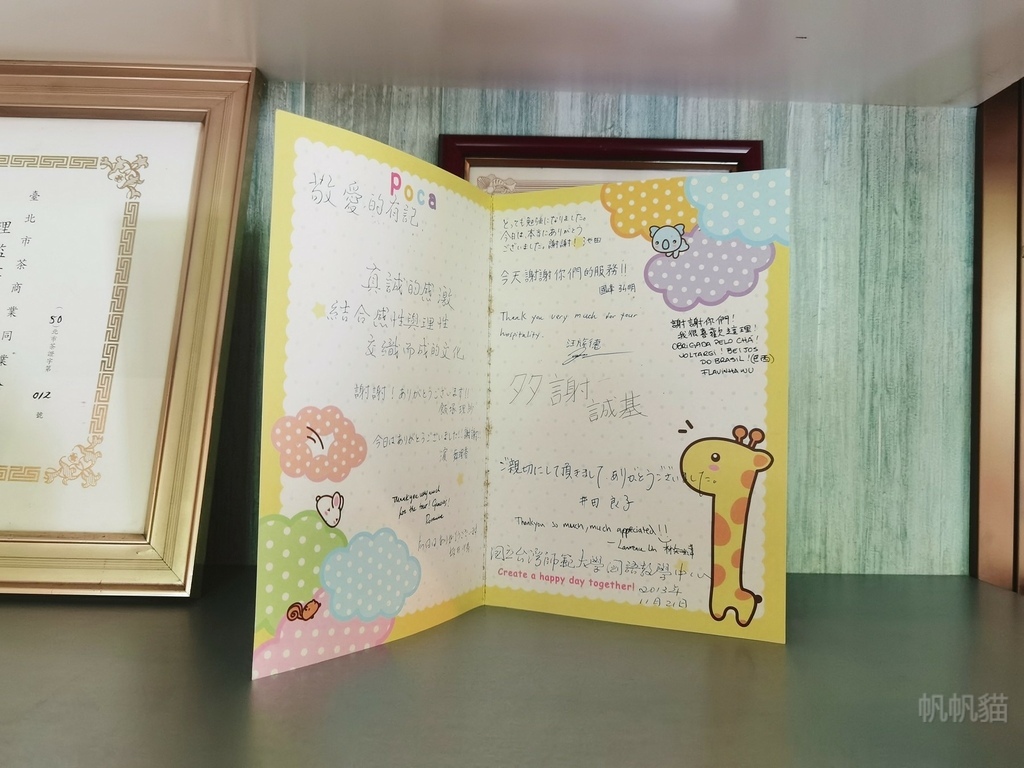 臺北市茶商業同業
50
北市茶證字第
012
號
poca
敬愛的有記:
真誠的感激
結合感性與理性
交織而成的文化
謝謝!ありがとうございます!!
今日はありがとうございました!謝謝
Thank you very much
for the tea!
とっても勉強になりました。
今日は、本当にありがとう
ございました。謝謝! 池田
今天謝謝你們的服務!!
Thank you very much for your
hospitality.
多謝
誠基
ご親切にして頂きまして ありがとうございました。
井田 良子
Thankyou so much, much appreciated!!
國立台灣師範大學國語教學中心
Create a happy day together!
2013年
11月21日
謝謝你們!
我很喜歡來這裡!
OBRIGADA PELO CHÁ!
VOLTAREI! BEIJOS
DO BRASIL! (巴西)
FLAVINHA WU
帆帆貓